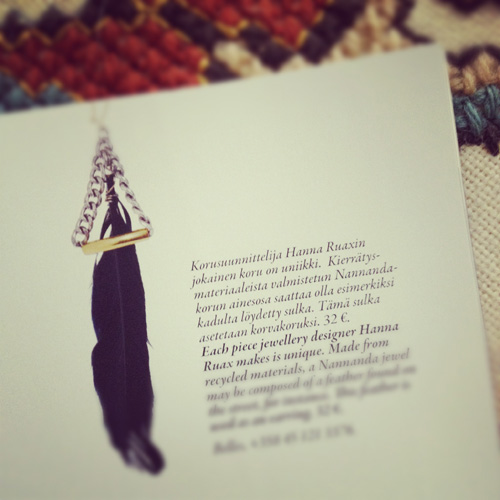 Korusuunnittelija Hanna Ruaxin
jokainen koru on uniikki. Kierrätys-
materiaaleista valmistetun Nannanda-
korun ainesosa saattaa olla esimerkiksi
kadulta löydetty sulka. Tämä sulka
asetetaan korvakoruksi. 32 €.
Each piece jewellery designer Hanna
Ruax makes is unique. Made from
recycled materials, a Nannanda jewel
may be composed of a feather found on
the street, for instance. This feather is
used as an earring. 32 €.